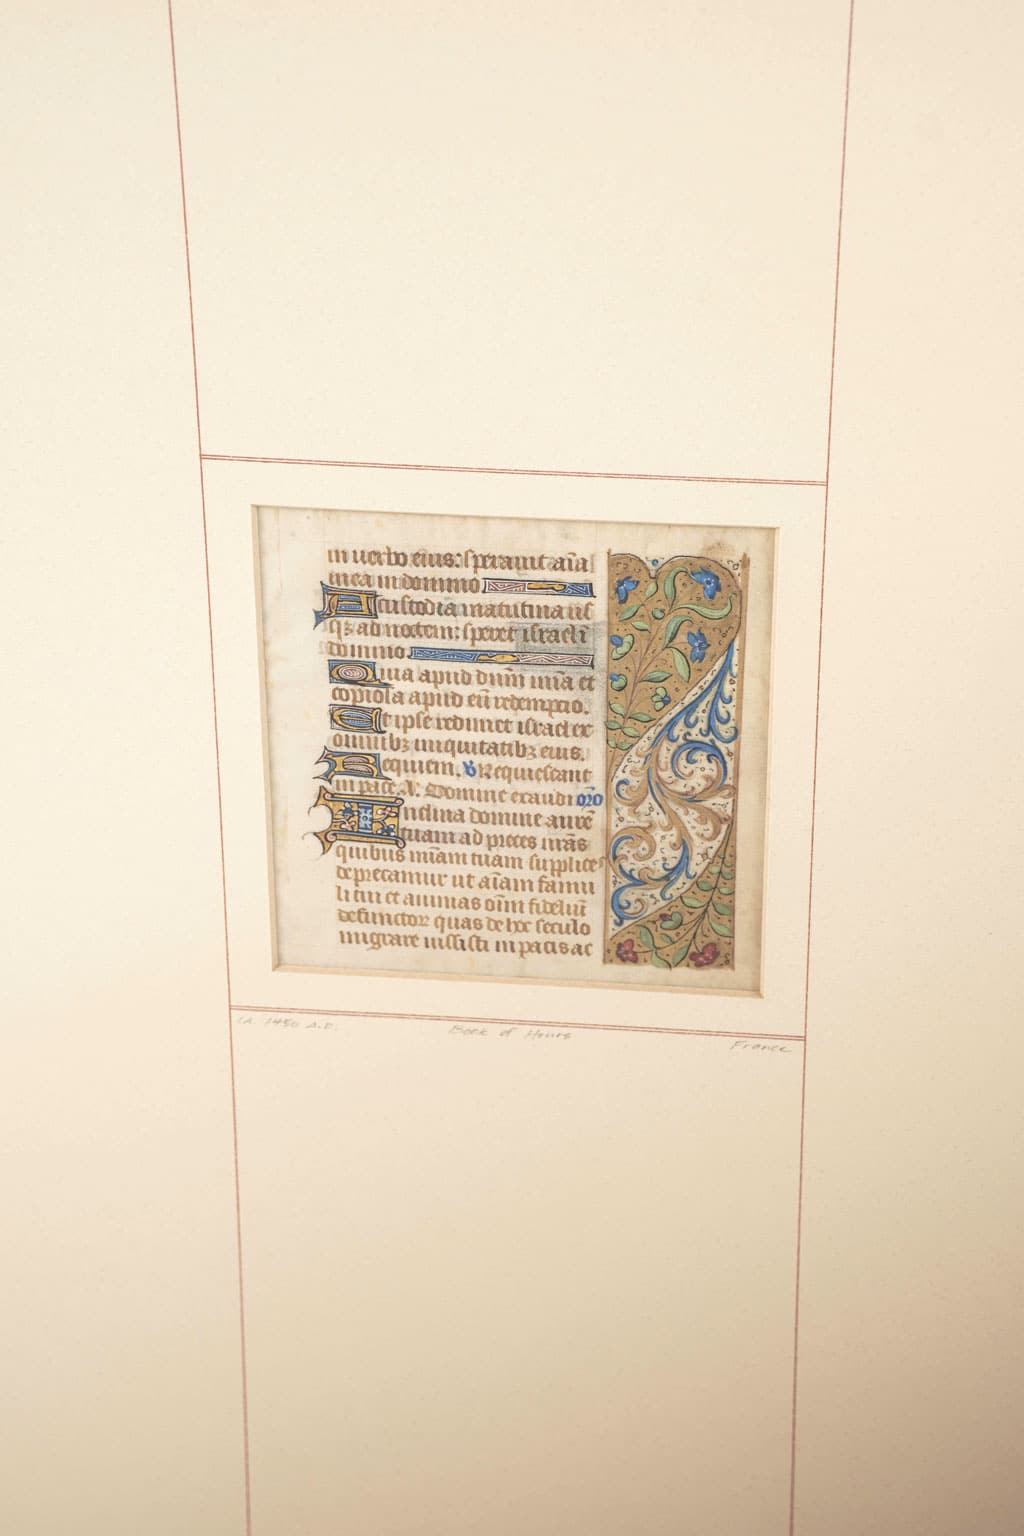 in uerbo eius: sperauit aīa
mea in domino
A custodia matutina us
qȝ ad noctem: speret israel ī
domino
Quia apud dnm mia et
copiosa apud eū redemptio.
Et ipse redimet israel ex
omnibȝ iniquitatibȝ eius.
Requiem. ℣ Requiescant
in pace. A. Domine exaudi oro
Inclina domine aurē
tuam ad preces nrās
quibus miam tuam supplices
deprecamur ut aīam famu
li tui et animas oīm fideliū
defunctoꝝ quas de hoc seculo
migrare iussisti in pacis ac
ca. 1450 A.D.
Book of Hours
France